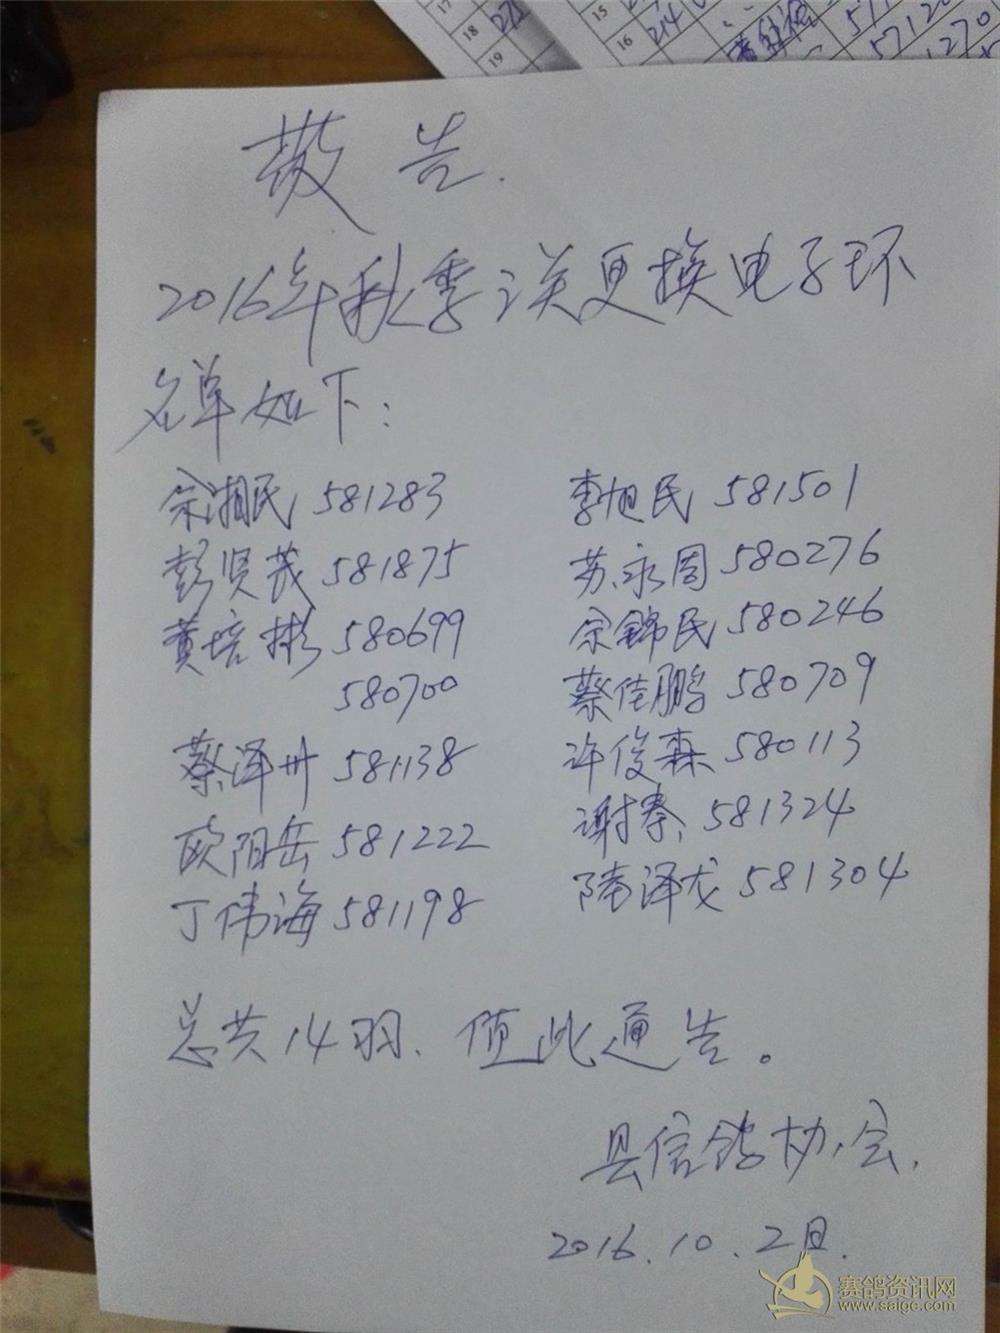 17
18
19
15
16 214
5712
1270
敬告.
2016年秋季误更换电子环
名单如下:
余湘民 581283 李旭民 581501
彭贤茂 581875 苏永固 580276
黄培彬 580699 余锦民 580246
580700 蔡佳鹏 580709
蔡泽州 581138 许俊森 580113
欧阳岳 581222 谢扬泰 581324
丁伟海 581198 陈泽龙 581304
总共14羽、值此通告。
县信鸽协会.
2016.10.2日.
赛鸽资讯网
www.saige.com